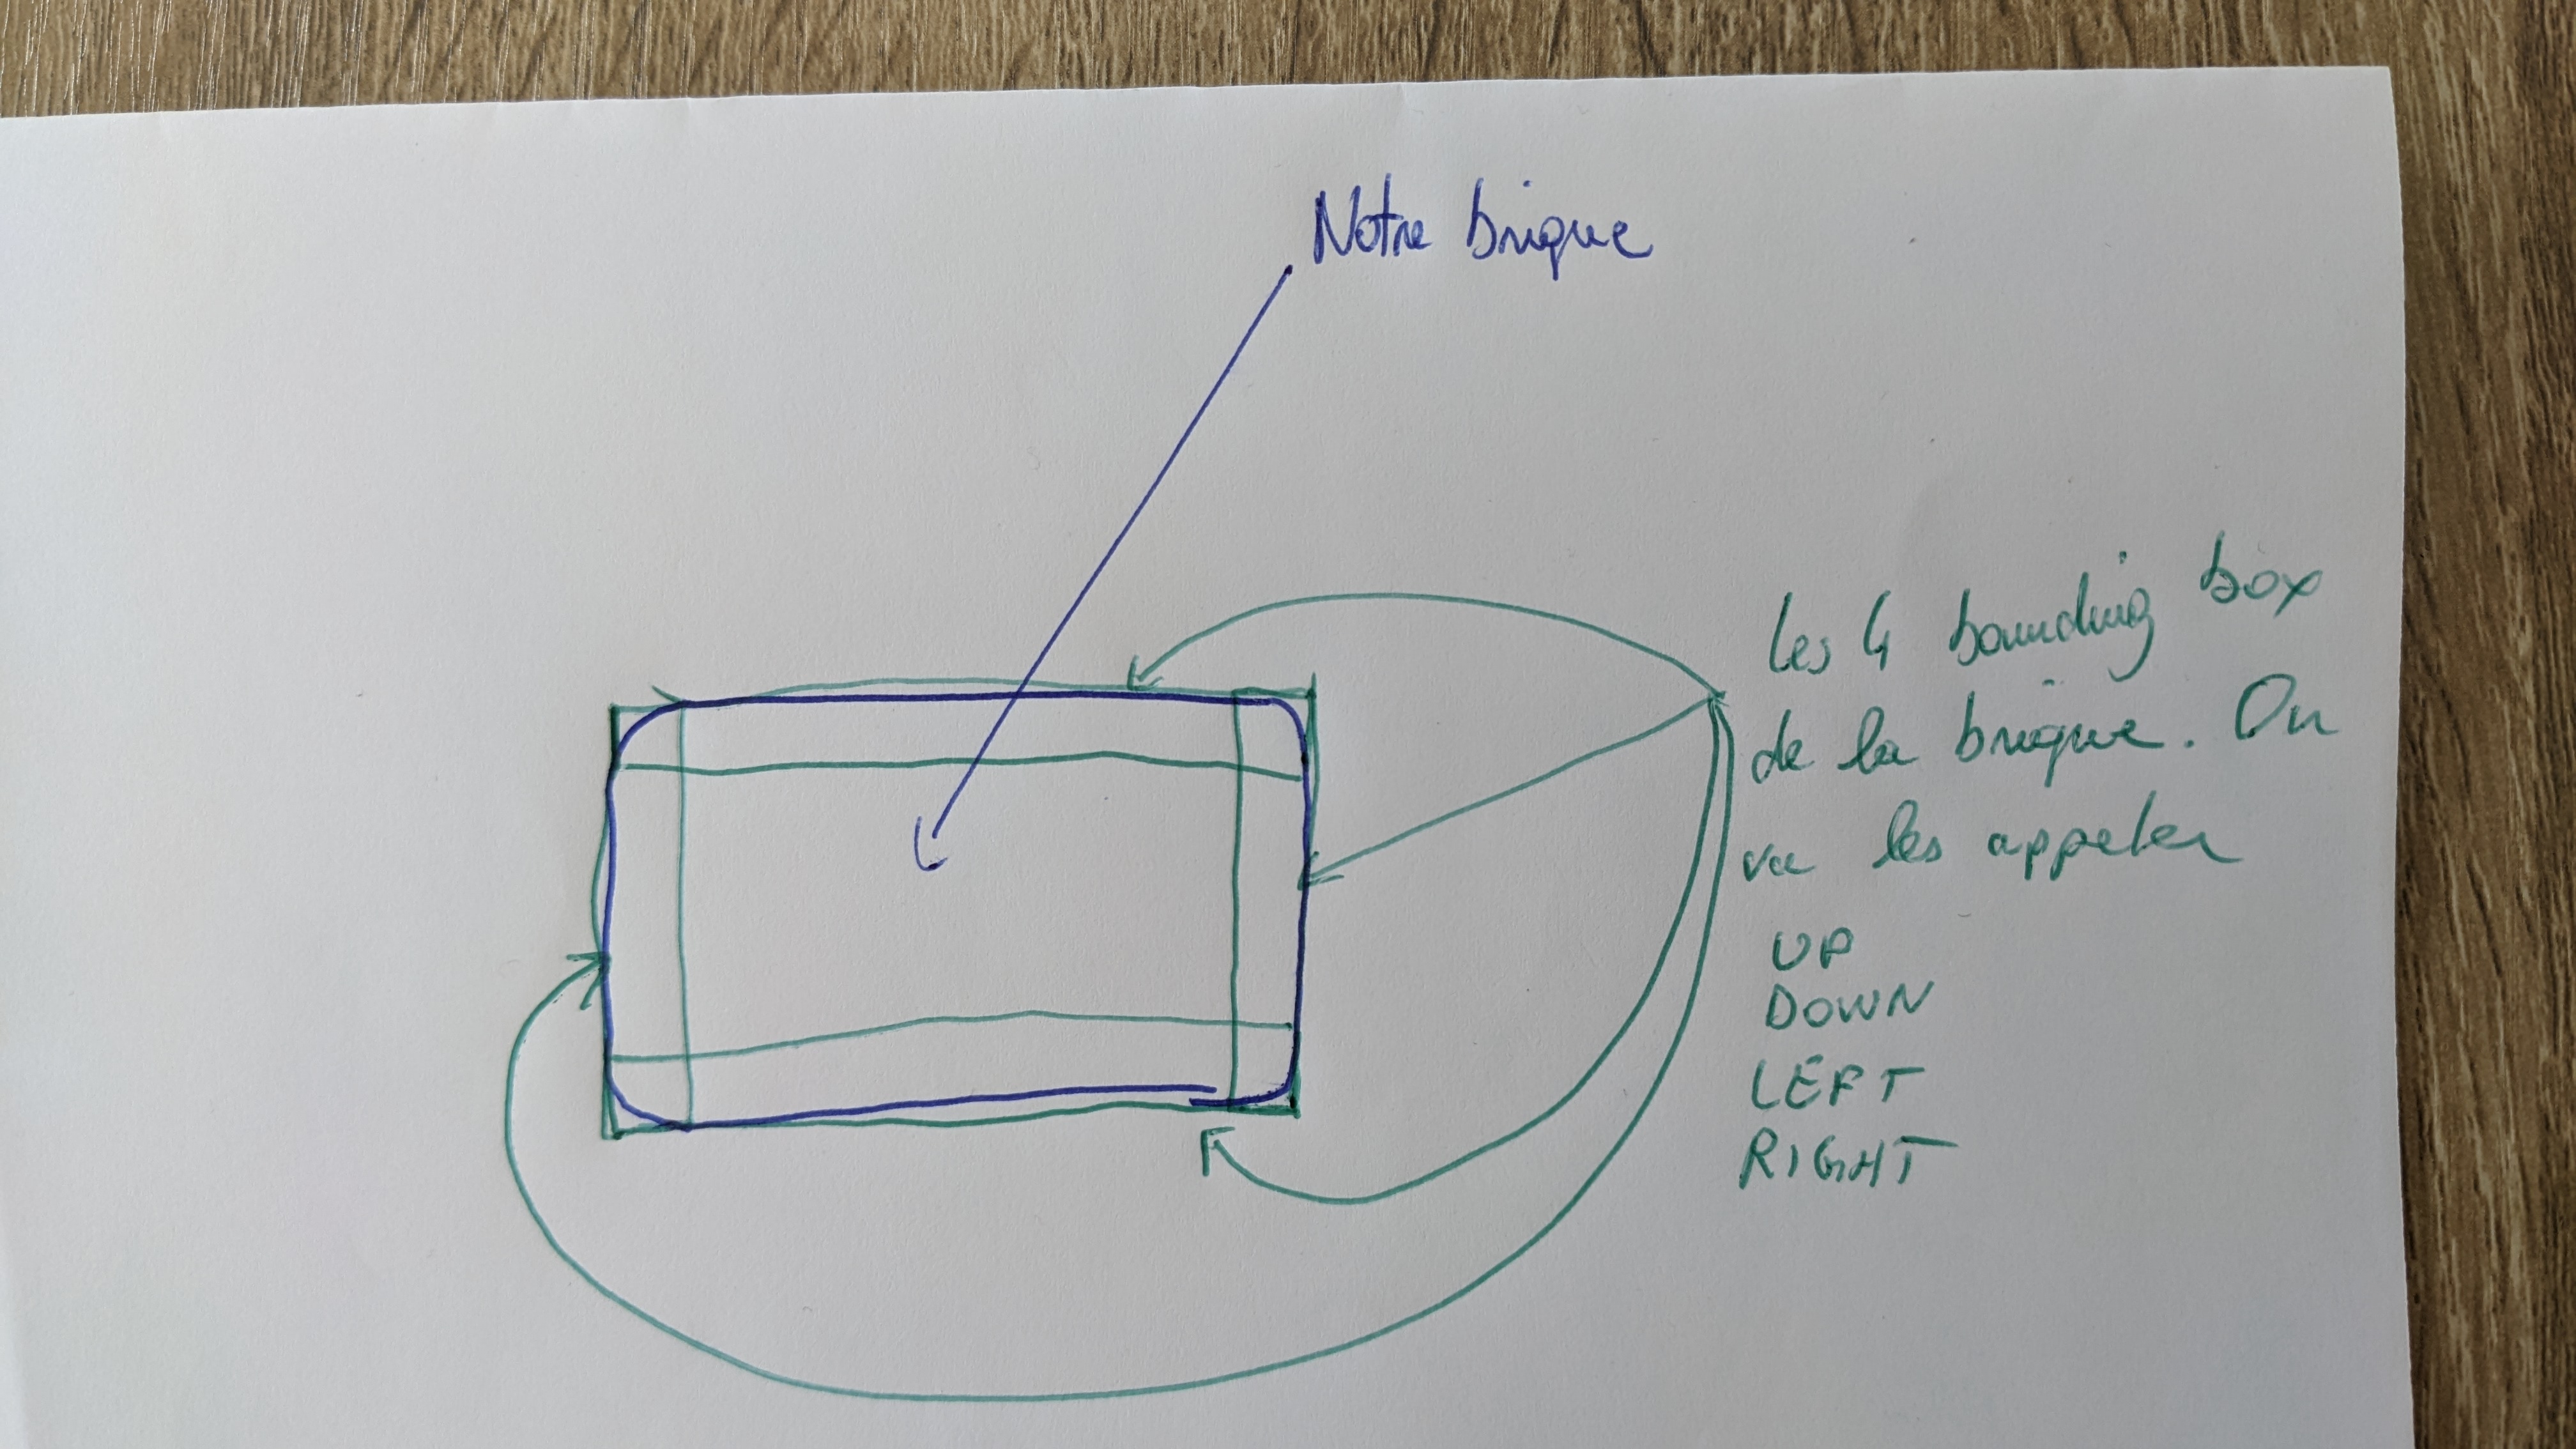 Notre brique
Les 4 bounding box
de la brique. On
va les appeler
UP
DOWN
LEFT
RIGHT